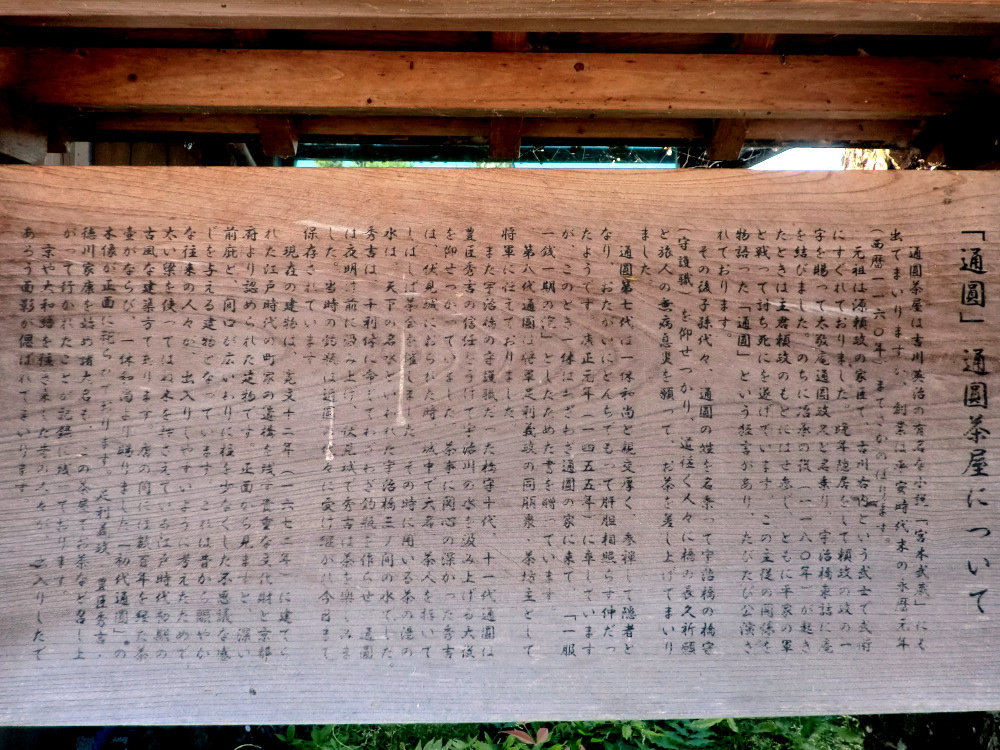 「通圓」通圓茶屋について
通圓茶屋は吉川英治の有名な小説「宮本武蔵」にそ
出てまいりますが、創業は平安時代末の永暦元年
(西暦一一六〇年)までさかのぼります。
元祖は源頼政の家臣で、古川右内という武士で武術
にすぐれておりました。晩年隠居をして頼政の政の一
字を賜って太敬庵通圓政久と名乗り、宇治橋東詰に庵
を結びました。のちに治承の役(一一八〇年)が起き
たときは主君頼政のもとにはせ参じ、ともに平家の軍
と戦って討ち死にを遂げています。この主従の関係を
物語った「通圓」という狂言があり、たびたび公演さ
れております。
その後子孫代々、通圓の姓を名乗って宇治橋の橋守
(守護職)を仰せつかり、道往く人々に橋の長久祈願
と旅人の無病息災を願って、お茶を差し上げてまいり
ました。
通圓第七代は一休和尚と親交厚く、参禅して隠者と
なり、おたがいにとんちでもって肝胆相照らす仲だっ
たようです。康正元年(一四五五年)に卒しています
が、このとき一休はわざわざ通圓の家に来て、「一服
一銭一期の泡」としたためた書を贈っています。
第八代通圓は将軍足利義政の同朋衆・茶坊主として
将軍に仕えておりました。
また宇治橋の守護職だった橋守十代、十一代通圓は
豊臣秀吉の信任をうけて宇治川の水を汲み上げる大役
を仰せつかっていました。茶事に関心の深かった秀吉
は、伏見城におられた時、城中で大名、茶人を招いて
しばしば茶会を催しました。その時に用いる茶の湯の
水は、天下の名水といわれた宇治橋三ノ間の水でした。
秀吉は、千利休に令してわざわざ釣瓶を作らせ、通圓
は夜明け前に汲み上げ、伏見城で秀吉は茶を楽しみま
した。当時の釣瓶は通圓代々に受け継がれ今日まで
保存されています。
現在の建物は、寛文十二年(一六七二年)に建てら
れた江戸時代の町家の遺構を残す貴重な文化財と京都
府より認められた建物です。正面から見ますと、深い
前庇と、間口が広いわりに柱を少なくした不思議な感
じを与える建物となっています。これは昔から賑やか
な往来の人々が、出入りしやすいように考えたためで、
太い梁を使ってはね木を持たえている江戸時代初期の
古風な建築方であります。店の間には数百年を経た茶
壷がならび、一休和尚より賜りました「初代通圓」の
木像が正面に祀られております。足利義政、豊臣秀吉・
徳川家康を始め諸大名も、この茶屋でお茶など召し上
がって行かれたことが記録に残っております。
京や大和路を往き来した昔の人々が、出入りしたで
あろう面影が偲ばれてまいります